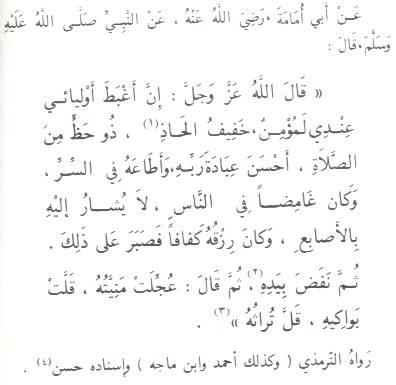 عَــنْ أَبي أُمَامَةَ ،رَضِيَ اللَّهُ عَنْهُ ، عَنِ النَّبِيِّ صَلَّى اللَّهُ عَلَيْهِ
وَسَلَّمَ،قَالَ :
« قَالَ اللَّهُ عَزَّ وَجَلَّ : إِنَّ أَغْبَطَ أَوْليائـي
عِنْدِي لَمُؤْمِنٌ،خَفِيفُ الحَاذِ(١) ، ذُو حَظٍّ مِنَ
الصَّلاَةِ ، أَحْسَنَ عِبَادَةَ رَبِّـهِ،وَأَطَاعَهُ فِي السِّرِّ ،
وَكَان غَامِضــاً فِي النَّاسِ ، لاَ يُشَــارُ إِليْهِ
بِالأَصابِعِ ، وَكَانَ رِزْقُهُ كَفَافاً فَصَبَرَ عَلى ذَلِكَ .
ثُـمَّ نَفَضَ بِيَدِهِ(٢)، ثُمَّ قَالَ : عُجِّلَتْ مَنِيَّتُهُ ، قَلَّتْ
بَوَاكِيهِ ، قَلَّ تُراثُهُ »(٣) .
رَوَاهُ التّرمذي ( وكذلك أحمد وابن ماجه ) وإسناده حسن(٤) .